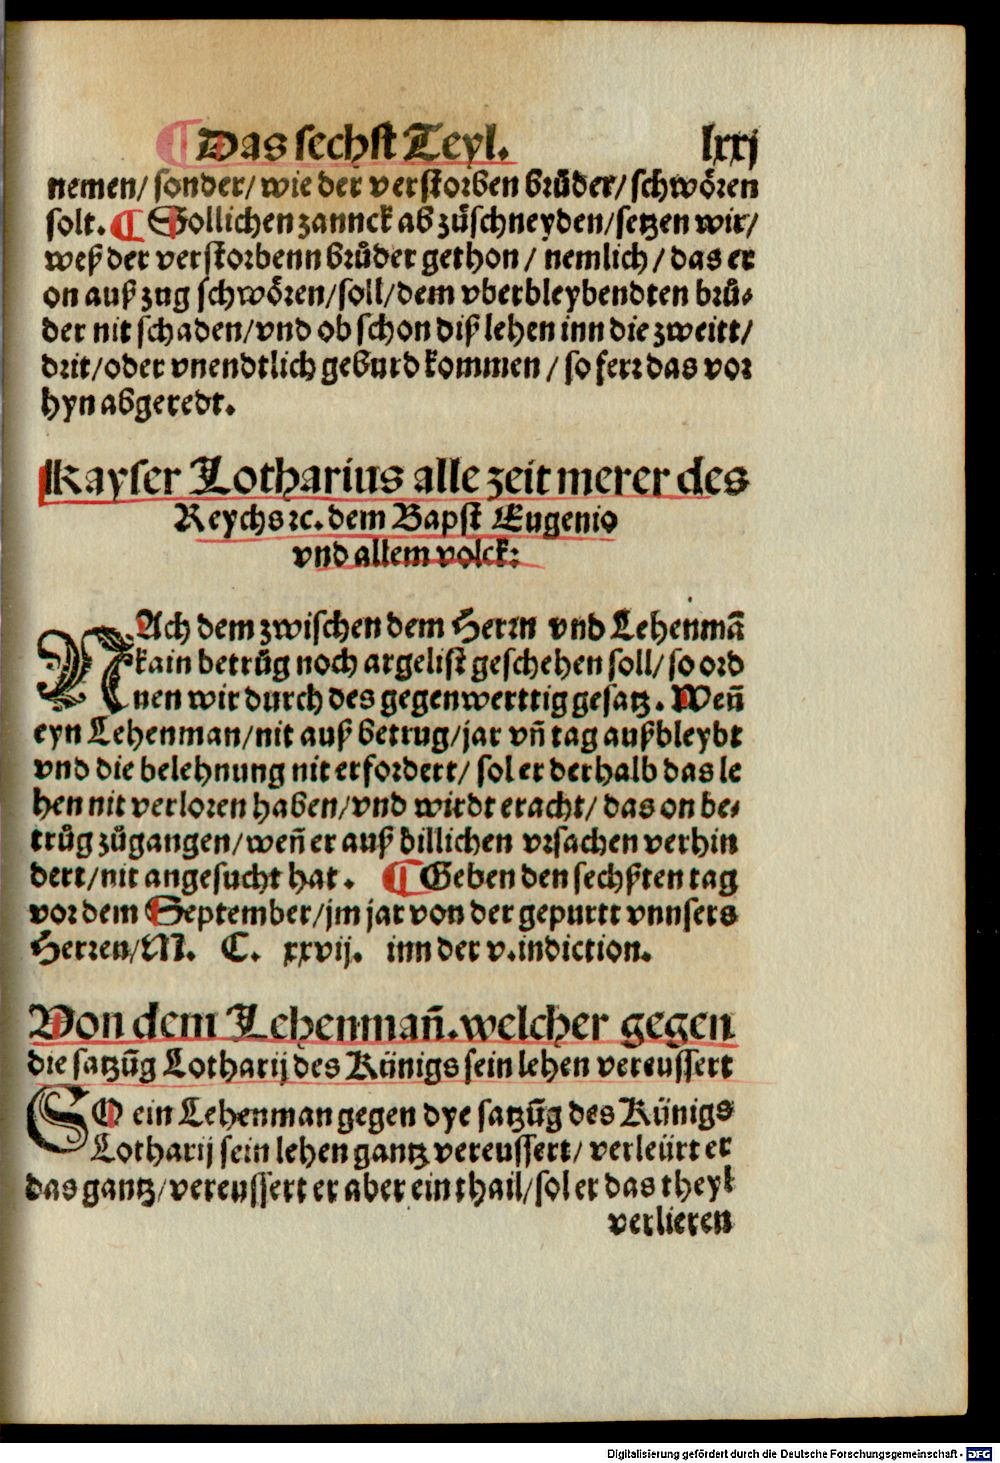 ¶ Das sechst Teyl. lxxj
nemen/ sonder/ wie der verstorben brůder/ schwören
solt. ¶ Sollichen zannck ab zůschneyden/setzen wir/
weß der verstorbenn brůder gethon / nemlich / das er
on auß zug schwören/soll/dem vberbleybendten brů⸗
der nit schaden/vnd ob schon diß lehen inn die zweitt/
drit/oder vnendtlich geburd kommen / so ferr das vor
hyn abgeredt.
Kayser Lotharius alle zeit merer des
Reychs ꝛc. dem Bapst Eugenio
vnd allem volck:
NAch dem zwischen dem Herrn vnd Lehenmā
kain betrůg noch argelist geschehen soll/ so ord
nen wir durch des gegenwerttig gesatz. Weñ
eyn Lehenman/nit auß betrug/jar vñ tag außbleybt
vnd die belehnung nit erfordert/ sol er derhalb das le
hen nit verloren haben/vnd wirdt eracht/ das on be⸗
trůg zůgangen/weñ er auß billichen vrsachen verhin
dert/nit angesucht hat. ¶ Geben den sechsten tag
vor dem September/jm jar von der gepurtt vnnsers
Herren/M. C. xxvij. inn der v.indiction.
Von dem Lehenmañ.welcher gegen
die satzūg Lotharij des Künigs sein lehen vereussert
SO ein Lehenman gegen dye satzūg des Künigs
Lotharij sein lehen gantz vereussert/ verleürt er
das gantz/vereussert er aber ein thail/sol er das theyl
verlieren
Digitalisierung gefördert durch die Deutsche Forschungsgemeinschaft - DFG